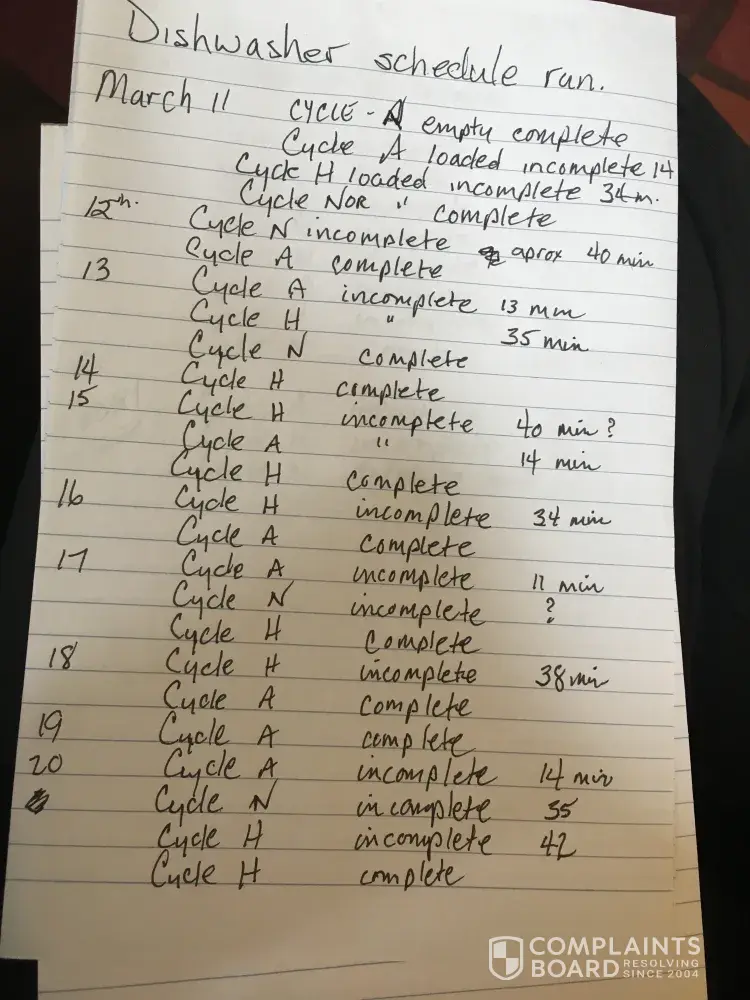 Dishwasher schedule run.
March 11 CYCLE - A empty complete
Cycle A loaded incomplete 14
Cycle H loaded incomplete 34 m.
Cycle NOR " complete
12th. Cycle N incomplete aprox 40 min
Cycle A complete
13 Cycle A incomplete 13 mm
Cycle H " 35 min
Cycle N complete
14 Cycle H complete
15 Cycle H incomplete 40 min ?
Cycle A " 14 min
Cycle H complete
16 Cycle H incomplete 34 min
Cycle A complete
17 Cycle A incomplete 11 min
Cycle N incomplete ?
Cycle H complete
18 Cycle H incomplete 38 min
Cycle A complete
19 Cycle A complete
20 Cycle A incomplete 14 min
Cycle N incomplete 35
Cycle H incomplete 42
Cycle H complete
COMPLAINTS
BOARD RESOLVING SINCE 2004